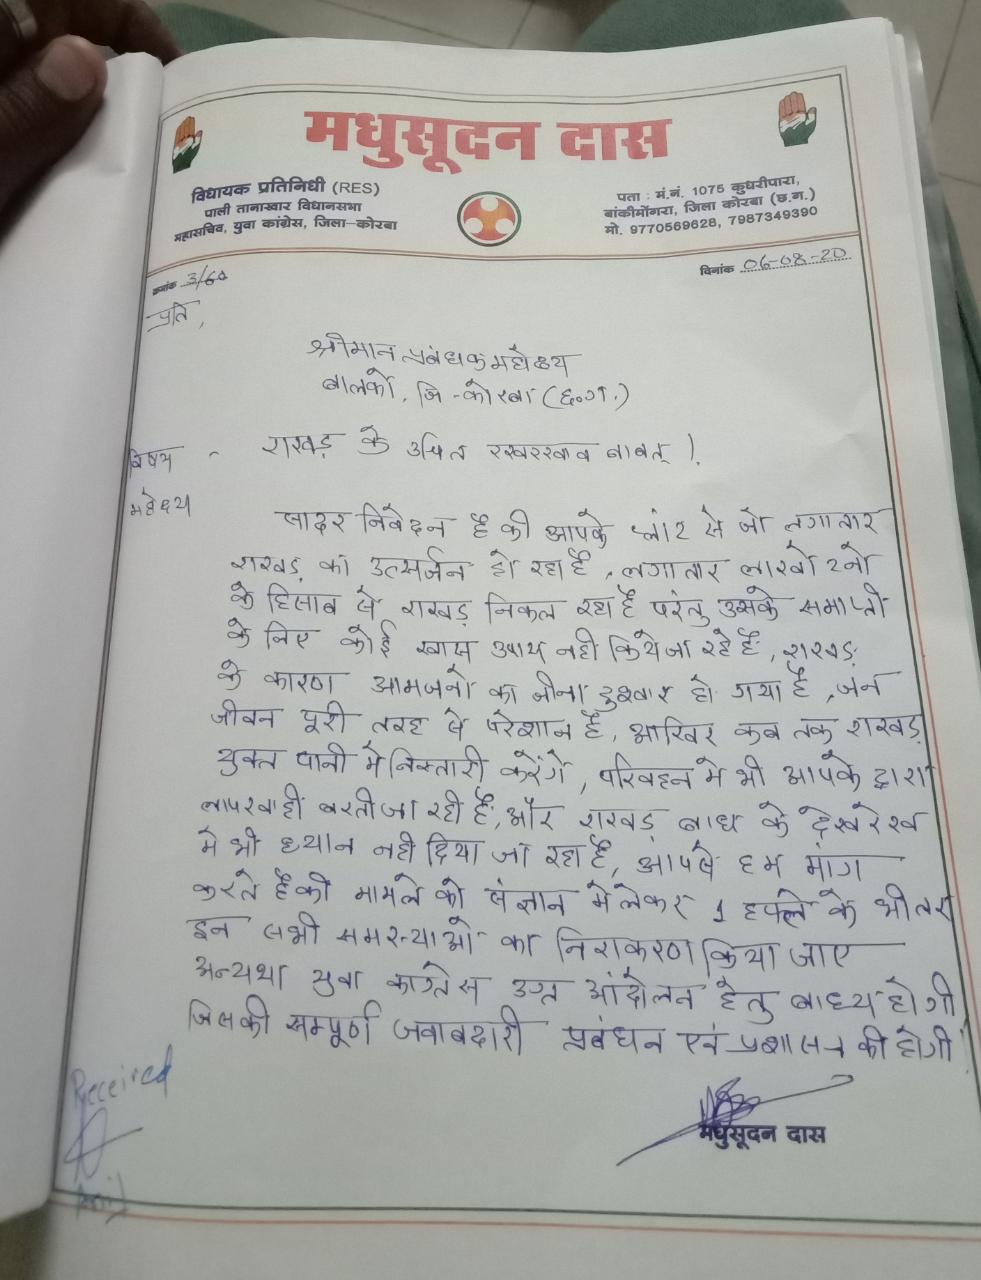 मधुसूदन दास
विधायक प्रतिनिधी (RES)
पाली तानाखार विधानसभा
महासचिव, युवा कांग्रेस, जिला-कोरबा
पता : मं.नं. 1075 कुधरीपारा,
बांकीमोंगरा, जिला कोरबा (छ.ग.)
मो. 9770569628, 7987349390
क्रमांक 3/60
दिनांक 06-08-20
प्रति,
श्रीमान प्रबंधक महोदय
बालको, जि-कोरबा (छ.ग.)
विषय - राखड़ के उचित रखरखाव बाबत्।
महोदय
सादर निवेदन है की आपके प्लांट से जो लगातार
राखड़ का उत्सर्जन हो रहा है, लगातार लाखो टनो
के हिसाब से राखड़ निकल रहा है परंतु उसके समाप्ती
के लिए कोई खास उपाय नही किये जा रहे है, राखड़
के कारण आमजनो का जीना दुश्वार हो गया है, जन
जीवन पूरी तरह से परेशान है, आखिर कब तक राखड़
युक्त पानी मे निस्तारी करेंगे, परिवहन मे भी आपके द्वारा
लापरवाही बरती जा रही है, और राखड़ बाध के देखरेख
मे भी ध्यान नही दिया जा रहा है, आपसे हम मांग
करते है की मामले को संज्ञान मे लेकर 1 हफ्ते के भीतर
इन सभी समस्याओ का निराकरण किया जाए
अन्यथा युवा कांग्रेस उग्र आंदोलन हेतु बाध्य होगी
जिसकी सम्पूर्ण जवाबदारी प्रबंधन एवं प्रशासन की होगी
Received
मधुसूदन दास